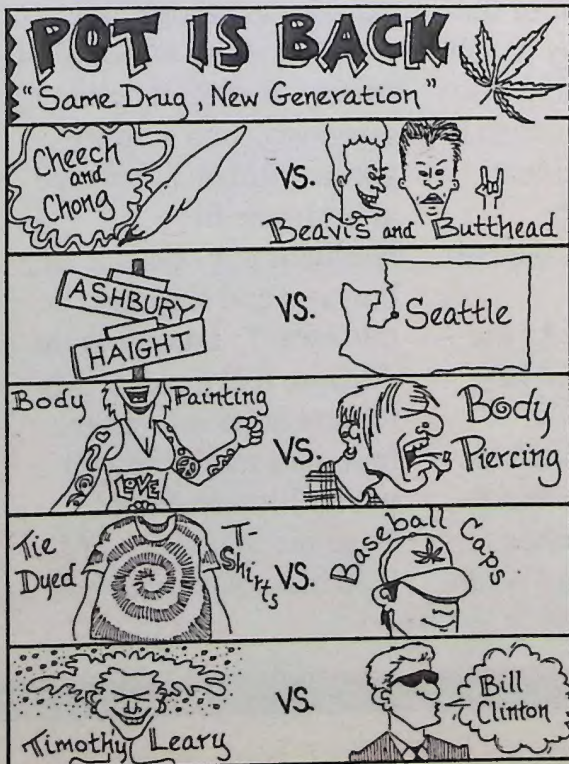 POT IS BACK
"Same Drug, New Generation"
Cheech
and
Chong
VS.
Beavis and Butthead
ASHBURY
HAIGHT
VS.
Seattle
Body Painting
LOVE
VS.
Body
Piercing
Tie
Dyed
T-
Shirts
VS.
Baseball Caps
Timothy Leary
VS.
Bill
Clinton